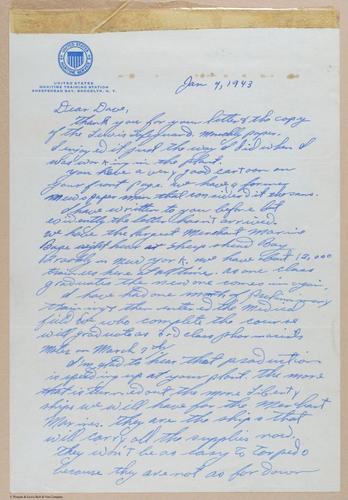 UNITED STATES
MARITIME TRAINING STATION
SHEEPSHEAD BAY, BROOKLYN, N. Y.
Jan 9, 1943
Dear Dave,
Thank you for your letter & the copy
of the Lewis Safeguard Monthly paper.
I enjoyed it just the way I did when I
was working in the plant.
You have a very good cartoon on
your front page. We have a former
newspaper man that considered it
I have written to you before but
evidently the letter hasn't arrived.
We have the largest Merchant Marine
Base right here at Sheepshead Bay
Brooklyn New York. We have about 12,000
trainees here at all times. As one class
graduates the new one comes in again.
I have had one month of preliminary
training & then entered the Medical
field. We who complete the course
will graduate as 3rd class pharmacists
mates on March
I'm glad to hear that production
is speeding up at your plant. The more
that is turned out the more Liberty
ships we will have for the Merchant
Marines. They are the ships that
will carry all the supplies now.
They won't be as easy to torpedo
because they are not as far down